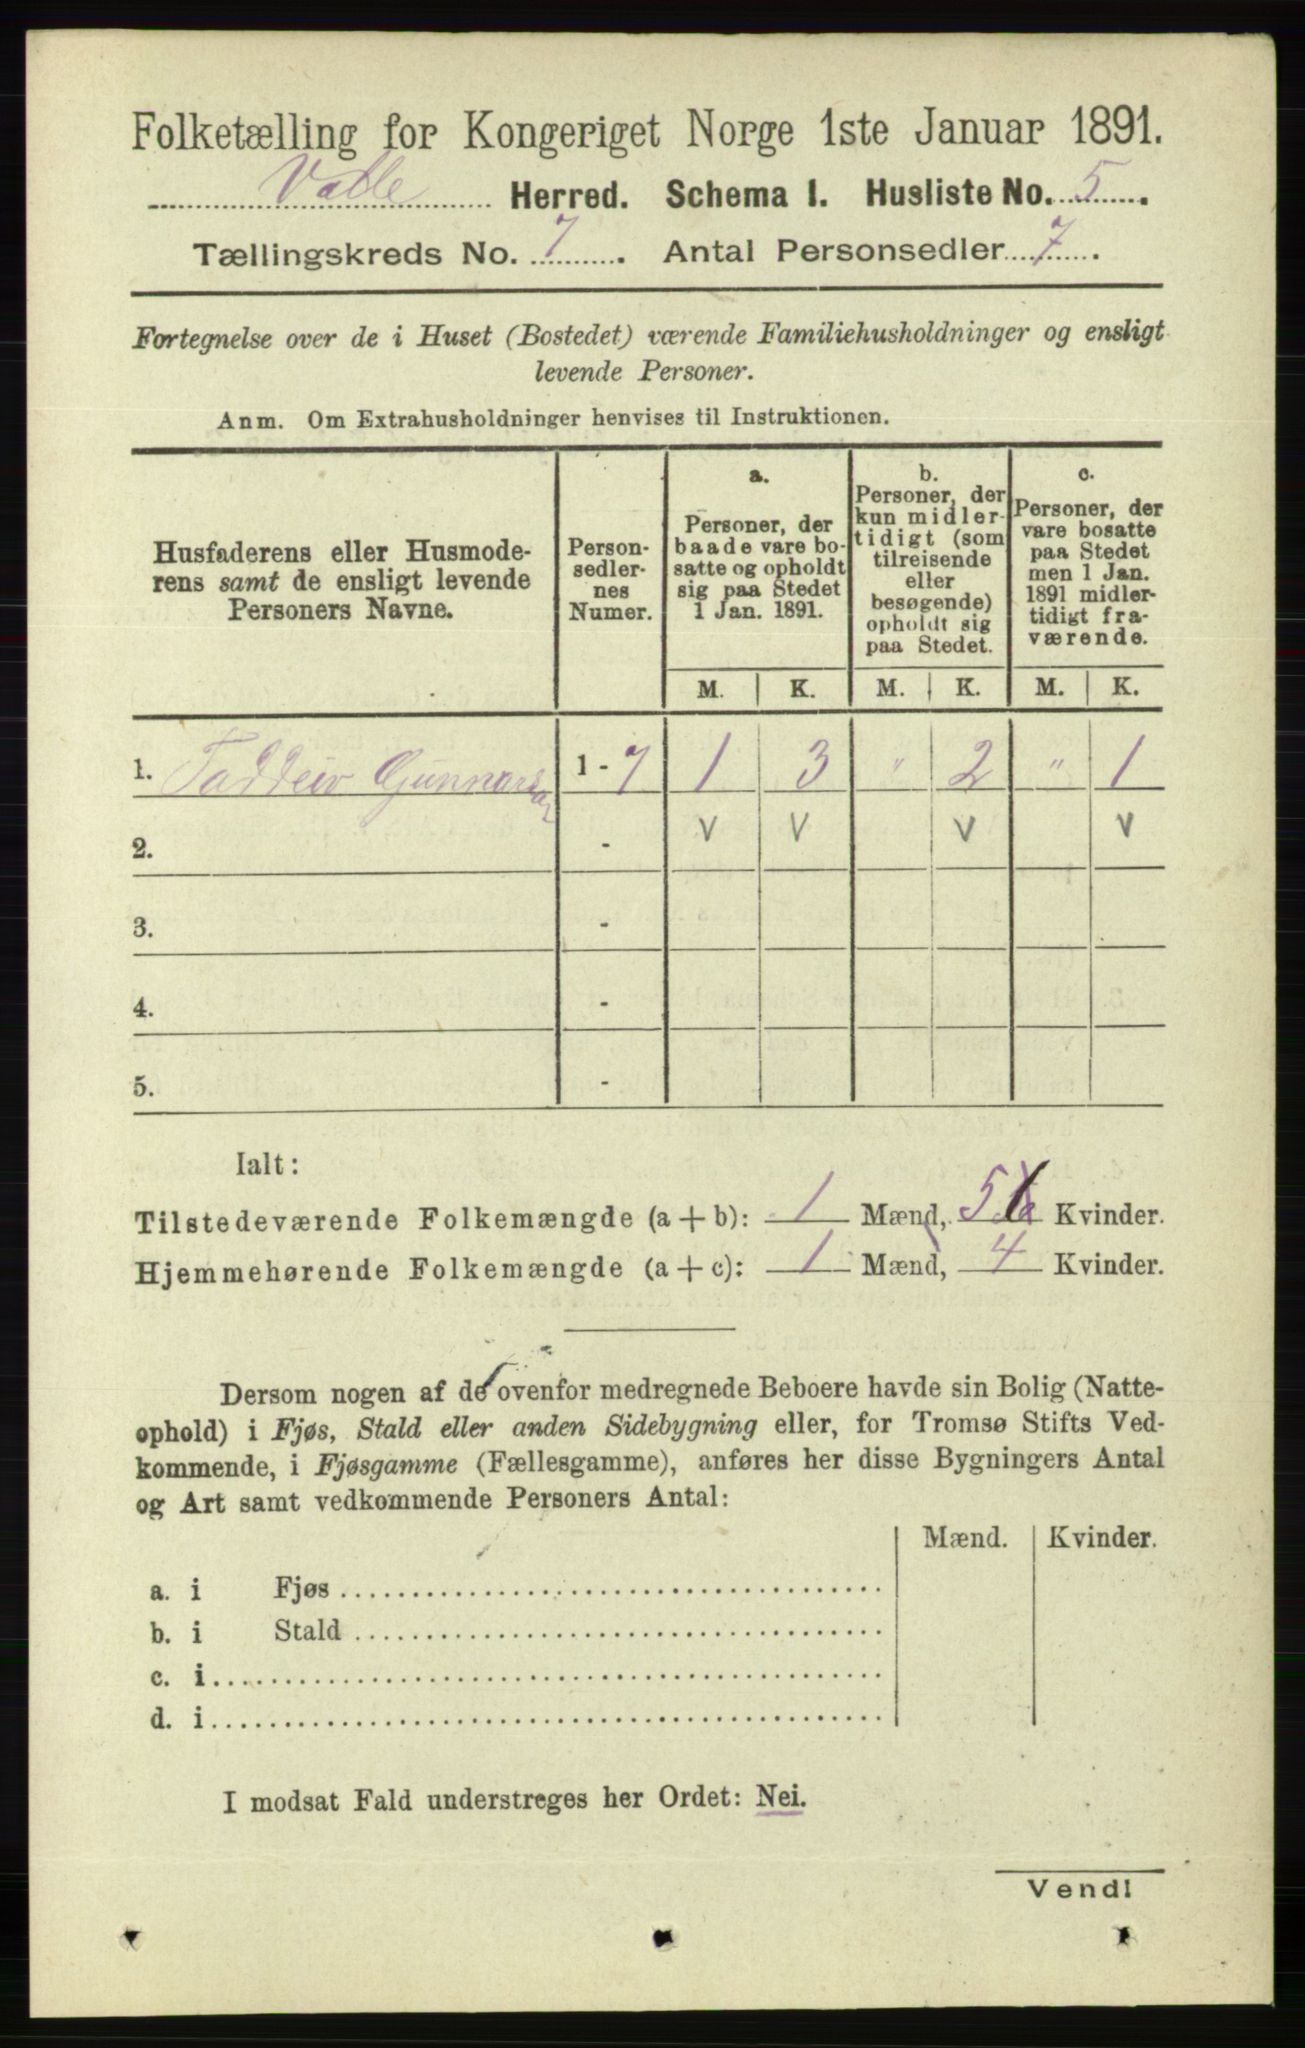 Folketælling for Kongeriget Norge 1ste Januar 1891.
Valle Herred. Schema I. Husliste No. 5.
Tællingskreds No. 7. Antal Personsedler 7.
Fortegnelse over de i Huset (Bostedet) værende Familiehusholdninger og ensligt
levende Personer.
Anm. Om Extrahusholdninger henvises til Instruktionen.
Husfaderens eller Husmode-
rens samt de ensligt levende
Personers Navne.
Person-
sedler-
nes
Numer.
a.
Personer, der
baade vare bo-
satte og opholdt
sig paa Stedet
1 Jan. 1891.
b.
Personer, der
kun midler-
tidigt (som
tilreisende
eller
besøgende)
opholdt sig
paa Stedet.
c.
Personer, der
vare bosatte
paa Stedet
men 1 Jan.
1891 midler-
tidigt fra-
værende.
M. K. M. K. M. K.
1. Taddeiv Gunnarsen 1 - 7 1 3 " 2 " 1
2. - v v v v
3. -
4. -
5. -
Ialt:
Tilstedeværende Folkemængde (a + b): 1 Mænd, 5 Kvinder.
Hjemmehørende Folkemængde (a + c): 1 Mænd, 4 Kvinder.
Dersom nogen af de ovenfor medregnede Beboere havde sin Bolig (Natte-
ophold) i Fjøs, Stald eller anden Sidebygning eller, for Tromsø Stifts Ved-
kommende, i Fjøsgamme (Fællesgamme), anføres her disse Bygningers Antal
og Art samt vedkommende Personers Antal:
Mænd. Kvinder.
a. i Fjøs
b. i Stald
c. i
d. i
I modsat Fald understreges her Ordet: Nei.
Vend!